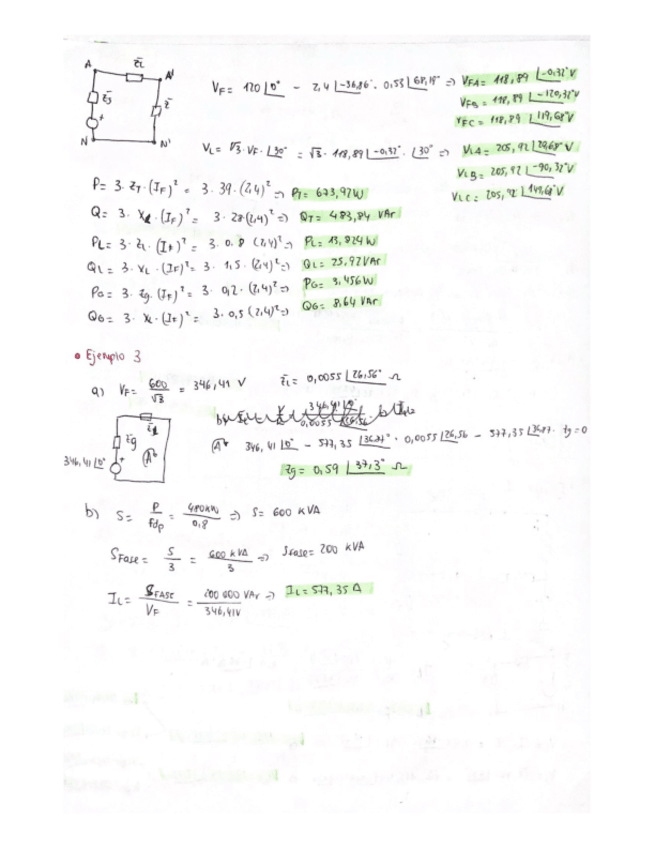 A Z̄L A'
Z̄g Z̄
+
N N'
VF = 120 ∠0° - 2,4 ∠-36,86° · 0,53 ∠68,19° => VFA = 118,89 ∠-0,32° V
VFB = 118,89 ∠-120,32° V
VFC = 118,89 ∠119,68° V
VL = √3 · VF · ∠30° = √3 · 118,89 ∠-0,32° · ∠30° => VLA = 205,92 ∠29,68° V
VLB = 205,92 ∠-90,32° V
VLC = 205,92 ∠149,68° V
P = 3 · ZT · (IF)² = 3 · 39 · (2,4)² => PT = 673,92 W
Q = 3 · XL · (IF)² = 3 · 28 (2,4)² => QT = 483,84 VAr
PL = 3 · ZL · (IF)² = 3 · 0.8 (2,4)² => PL = 13,824 W
QL = 3 · XL · (IF)² = 3 · 1,5 · (2,4)² => QL = 25,92 VAr
PG = 3 · Zg · (IF)² = 3 · 0,2 · (2,4)² => PG = 3,456 W
QG = 3 · XL · (IF)² = 3 · 0,5 (2,4)² => QG = 8,64 VAr
• Ejemplo 3
a) VF = 600/√3 = 346,41 V Z̄L = 0,0055 ∠26,56° Ω
346,41 ∠0°
0,0055 ∠26,56
Zg
+
346,41 ∠0°
346,41 ∠0° - 577,35 ∠36,87° · 0,0055 ∠26,56 - 577,35 ∠36,87 · Zg = 0
Zg = 0,59 ∠37,3° Ω
b) S = P/Fdp = 480kW/0,8 => S = 600 kVA
SFase = S/3 = 600 kVA/3 => Sfase = 200 kVA
IL = SFASE/VF = 200 000 VAr/346,41V => IL = 577,35 A